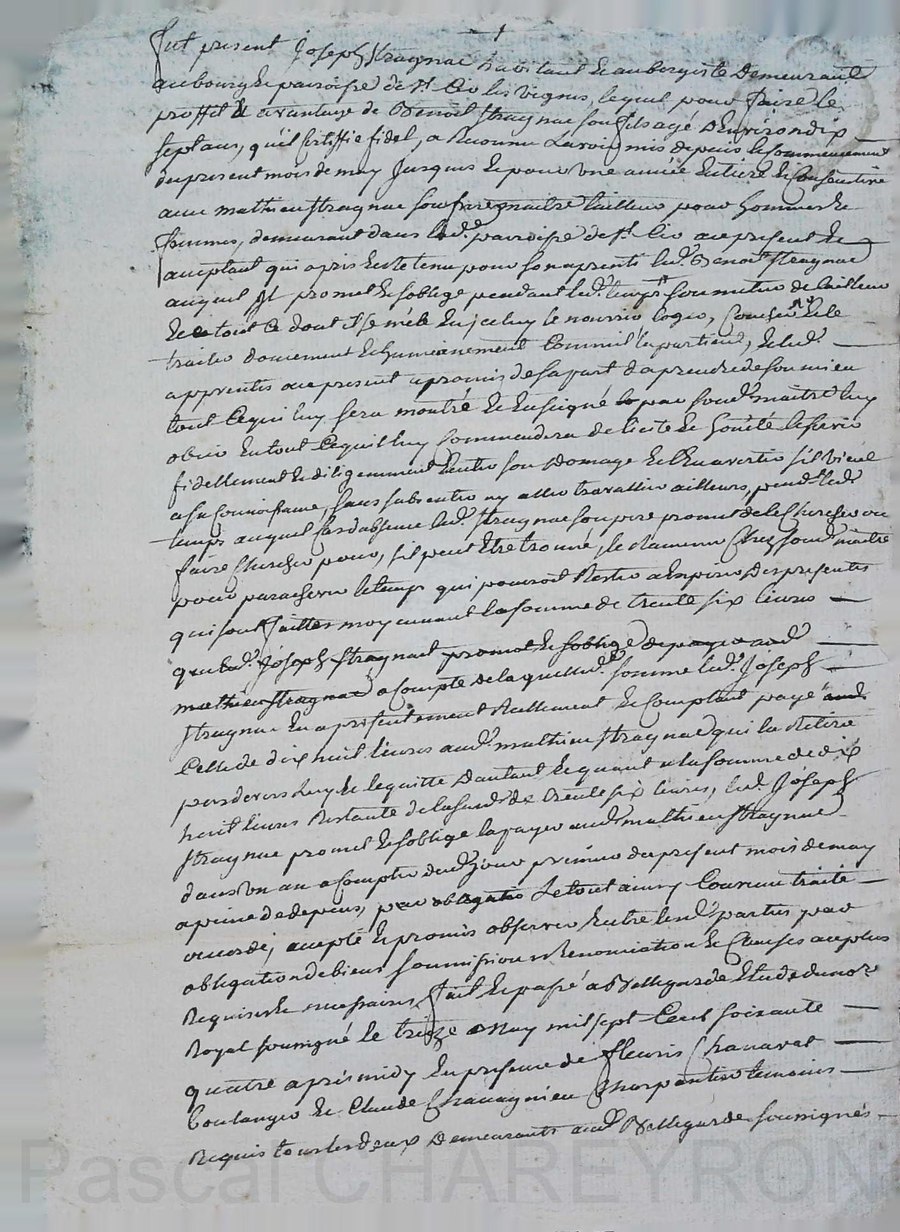 fut present Joseph Stragnac habitant et aubergiste demeurant
au bourg et paroisse de St. Cir les vignes, lequel pour faire le
proffit et avantage de Benoit Stragnac son fils agé d'environ dix
sept ans, qu'il sertiffie fidel, a reconnu l'avoir mis depuis le commencement
du present mois de may jusques et pour une année entiere et consecutive
avec mathieu Stragnac son frere maitre tailleur pour hommes et
femmes, demeurant dans lad. parroisse de St. Cir au present et
acceptant qui a pris et retenu pour son aprenti led. Benoit Stragnac
auquel il promet et s'oblige pendant led. temps son metier de tailleur
et tout ce dont il se mêle en jceluy le nourrir loger, coucher et le
traiter doucement et humainement comme il apartient, et led.
apprentis au present a promis de sa part d'aprendre de son mieu
tout ce qui luy sera montré et enseigné par sond. maitre luy
obeir en tout ce qu'il luy commendera de licite et honête le servir
fidellement et diligemment eviter son domage et l'en avertir s'il vient
a sa connoissance, sans s'absenter ny aller travailler ailleurs, pendt. led.
temps auquel cas d'absence led. Stragnac son pere promet de le chercher ou
faire chercher pour, s'il peut être trouvé, le ramener chez sond. maitre
pour parachever le temps qui pourroit rester a expirer des presentes
qui sont faittes moyennant la somme de trente six livres
que led. Joseph Stragnac promet et s'oblige de payer aud.
mathieu Stragnac a compte de laquelle d. somme led. Joseph
Stragnac en a presentement reellement et comptant payé
celle de dix huit livres aud. mathieu Stragnac qui la retiré
pardevers luy et le quitte d'autant et quant a la somme de dix
huit livres restante de la sud. de trente six livres, led. Joseph
Stragnac promet et s'oblige la payer aud. mathieu Stragnac
dans un an a compter dud. jour premier du present mois de may
a peine de depens, par obligatio Le tout ainsy convenu traité
accordé, accepté et promis observer entre lesd. parties par
obligation de biens soumissions renonciation et clauses au plus
requises et necessaires, fait et passé a Bellegarde Etude du nore.
Royal soussigné le treize may mil sept cent soixante
quatre aprés midy en presence de fleuris Chanavat
boulanger et Claude charpentier temoins
requis tous les deux demeurants aud. Bellegarde soussignés
Pascal CHAREYRON